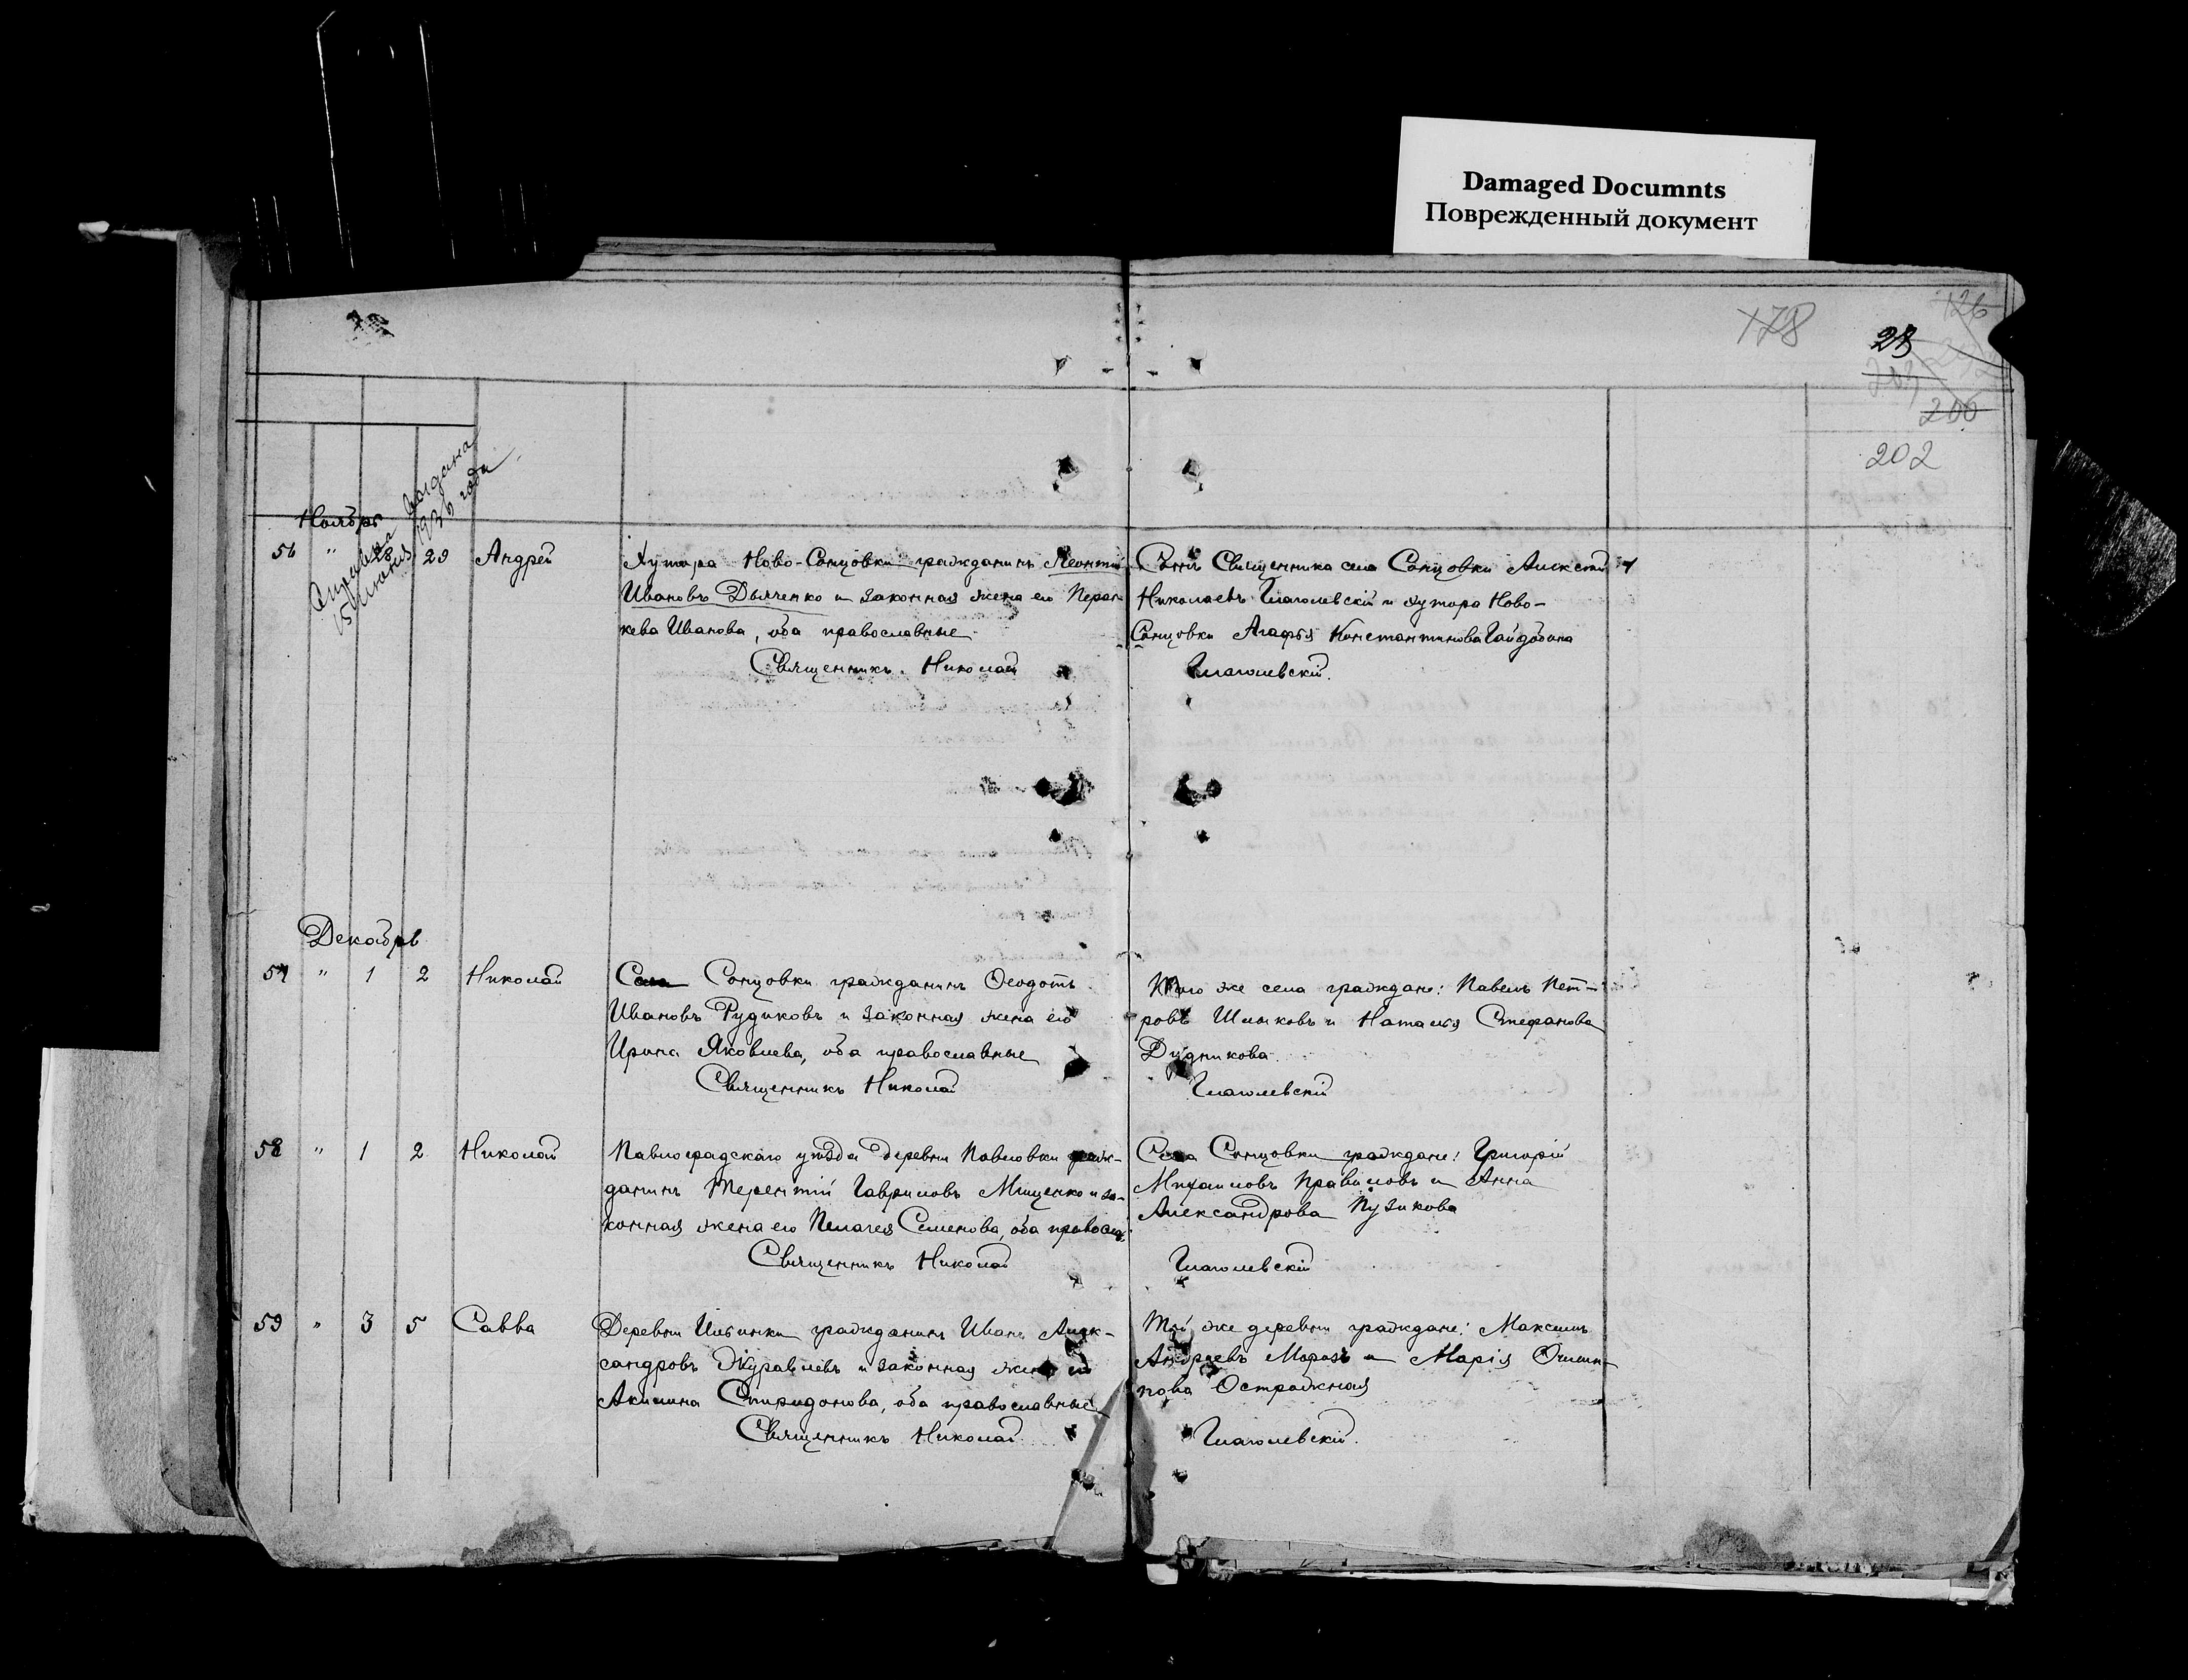 Damaged Documnts
Поврежденный документ
178
28
126
203
200
202
Справка выдана
15 июня 1936 года
Ноябрь
56 " 28 29 Андрей
Хутора Ново-Сонцовки гражданинъ Леонтій
Ивановъ Дьяченко и законная жена его Парас-
кева Иванова, оба православные
Священникъ Николай
Сынъ Священника села Сонцовки Алексѣй
Николаевъ Глаголевскій и хутора Ново-
Сонцовки Агафья Константинова Гайдобина
Глаголевскій.
Декабрь
57 " 1 2 Николай
Села Сонцовки гражданинъ Ѳеодотъ
Ивановъ Рудиковъ и законная жена его
Ирина Яковлева, оба православные
Священникъ Николай
Того же села граждане: Павелъ Пет-
ровъ Шлыковъ и Наталья Стефанова
Дудникова.
Глаголевскій
58 " 1 2 Николай
Павлоградскаго уѣзда деревни Павловки граж-
данинъ Терентій Гавриловъ Мищенко и за-
конная жена его Пелагея Семенова, оба правосл.
Священникъ Николай
Села Сонцовки граждане: Григорій
Михаиловъ Правиловъ и Анна
Александрова Пузикова
Глаголевскій
59 " 3 5 Савва
Деревни Ильинки гражданинъ Иванъ Алек-
сандровъ Журавлевъ и законная жена его
Акилина Спиридонова, оба православные
Священникъ Николай
Той же деревни граждане: Максимъ
Андреевъ Морозъ и Марія
Остражная
Глаголевскій.